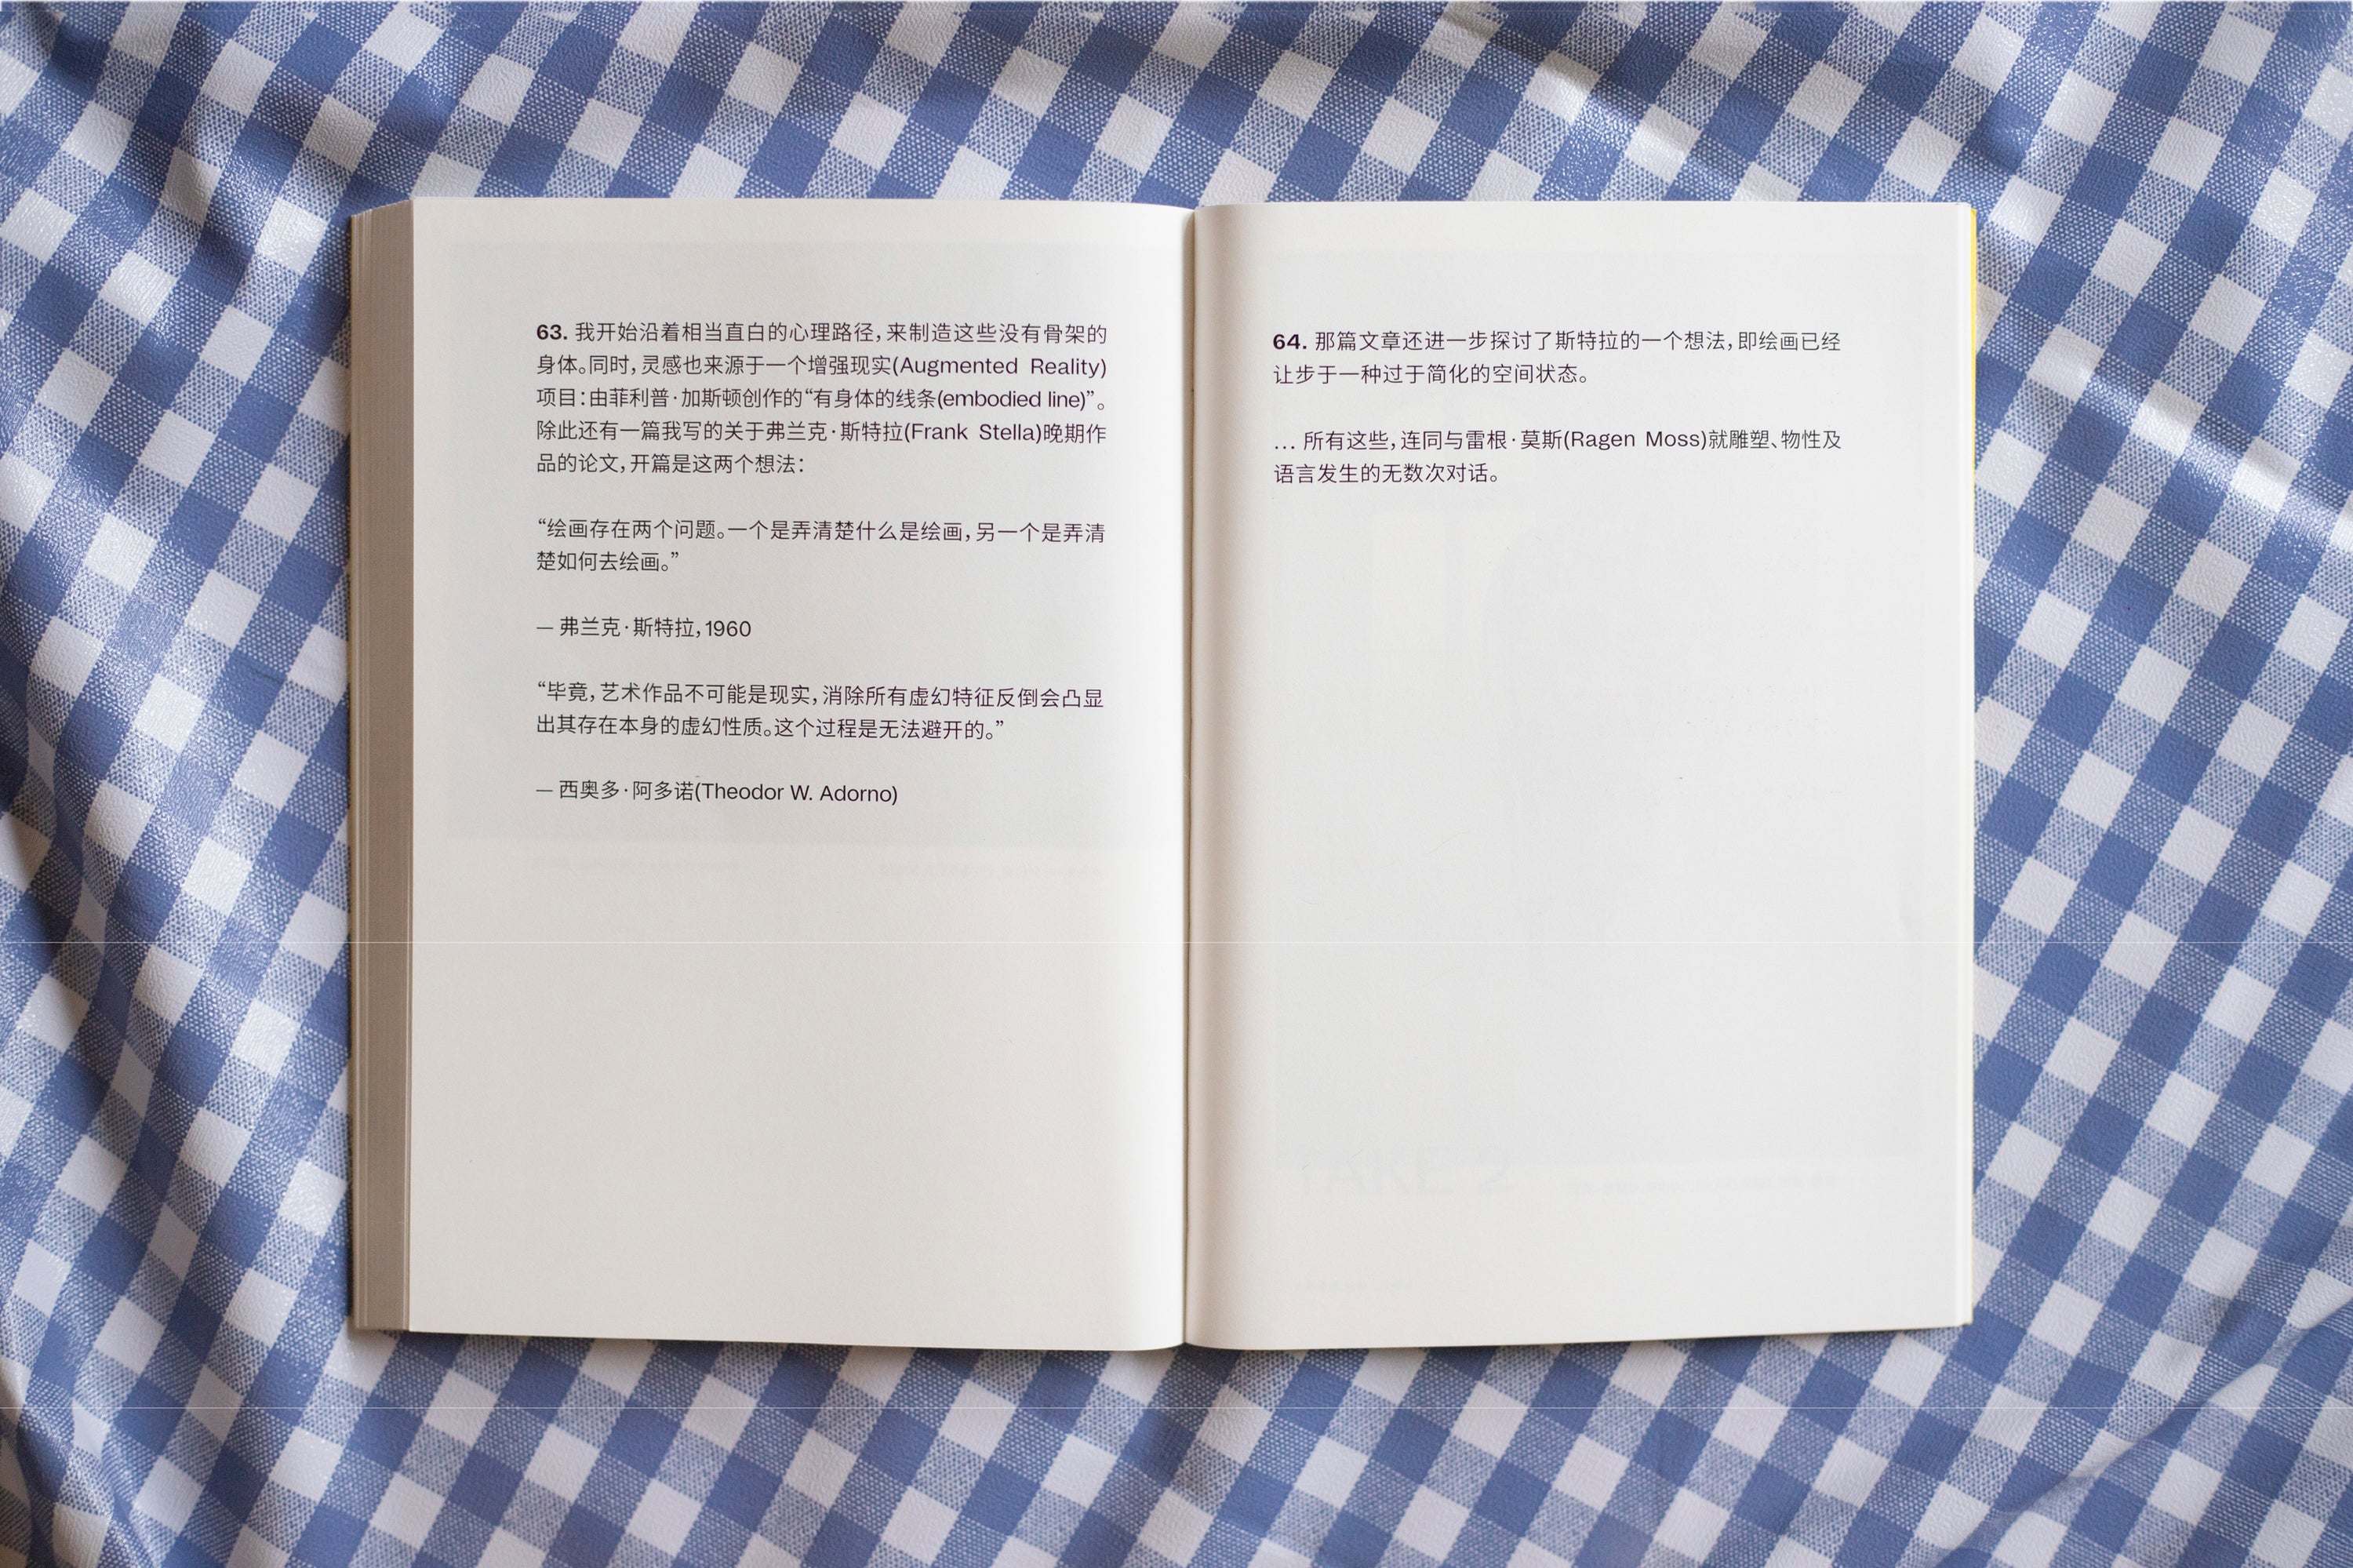 63. 我开始沿着相当直白的心理路径，来制造这些没有骨架的
身体。同时，灵感也来源于一个增强现实(Augmented Reality)
项目：由菲利普·加斯顿创作的“有身体的线条(embodied line)”。
除此还有一篇我写的关于弗兰克·斯特拉(Frank Stella)晚期作
品的论文，开篇是这两个想法：
“绘画存在两个问题。一个是弄清楚什么是绘画，另一个是弄清
楚如何去绘画。”
— 弗兰克·斯特拉，1960
“毕竟，艺术作品不可能是现实，消除所有虚幻特征反倒会凸显
出其存在本身的虚幻性质。这个过程是无法避开的。”
— 西奥多·阿多诺(Theodor W. Adorno)
64. 那篇文章还进一步探讨了斯特拉的一个想法，即绘画已经
让步于一种过于简化的空间状态。
... 所有这些，连同与雷根·莫斯(Ragen Moss)就雕塑、物性及
语言发生的无数次对话。
TAKE 2